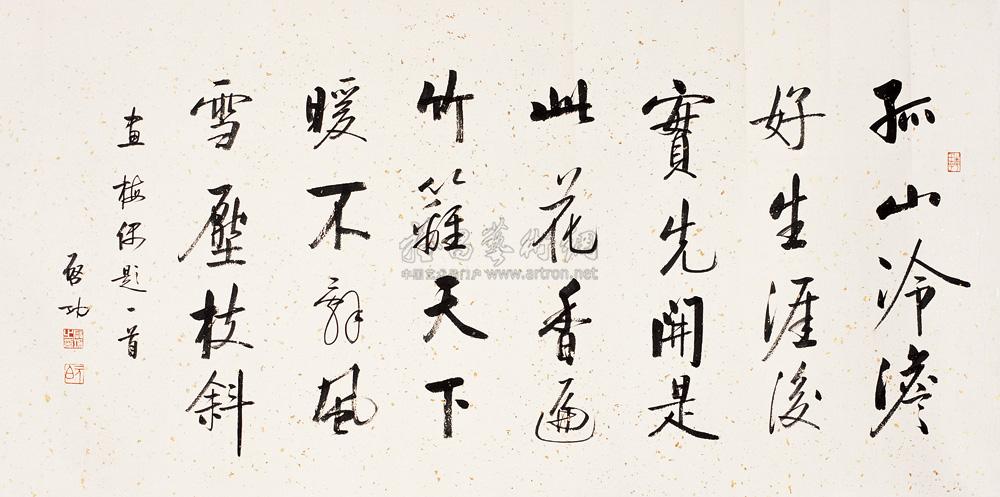 孤山冷澹
好生涯後
實先開是
此花香遍
竹籬天下
暖不辭風
雪壓枝斜
畫梅偶題一首
啓功
雅昌藝術網
中国艺术品门户 www.artron.net